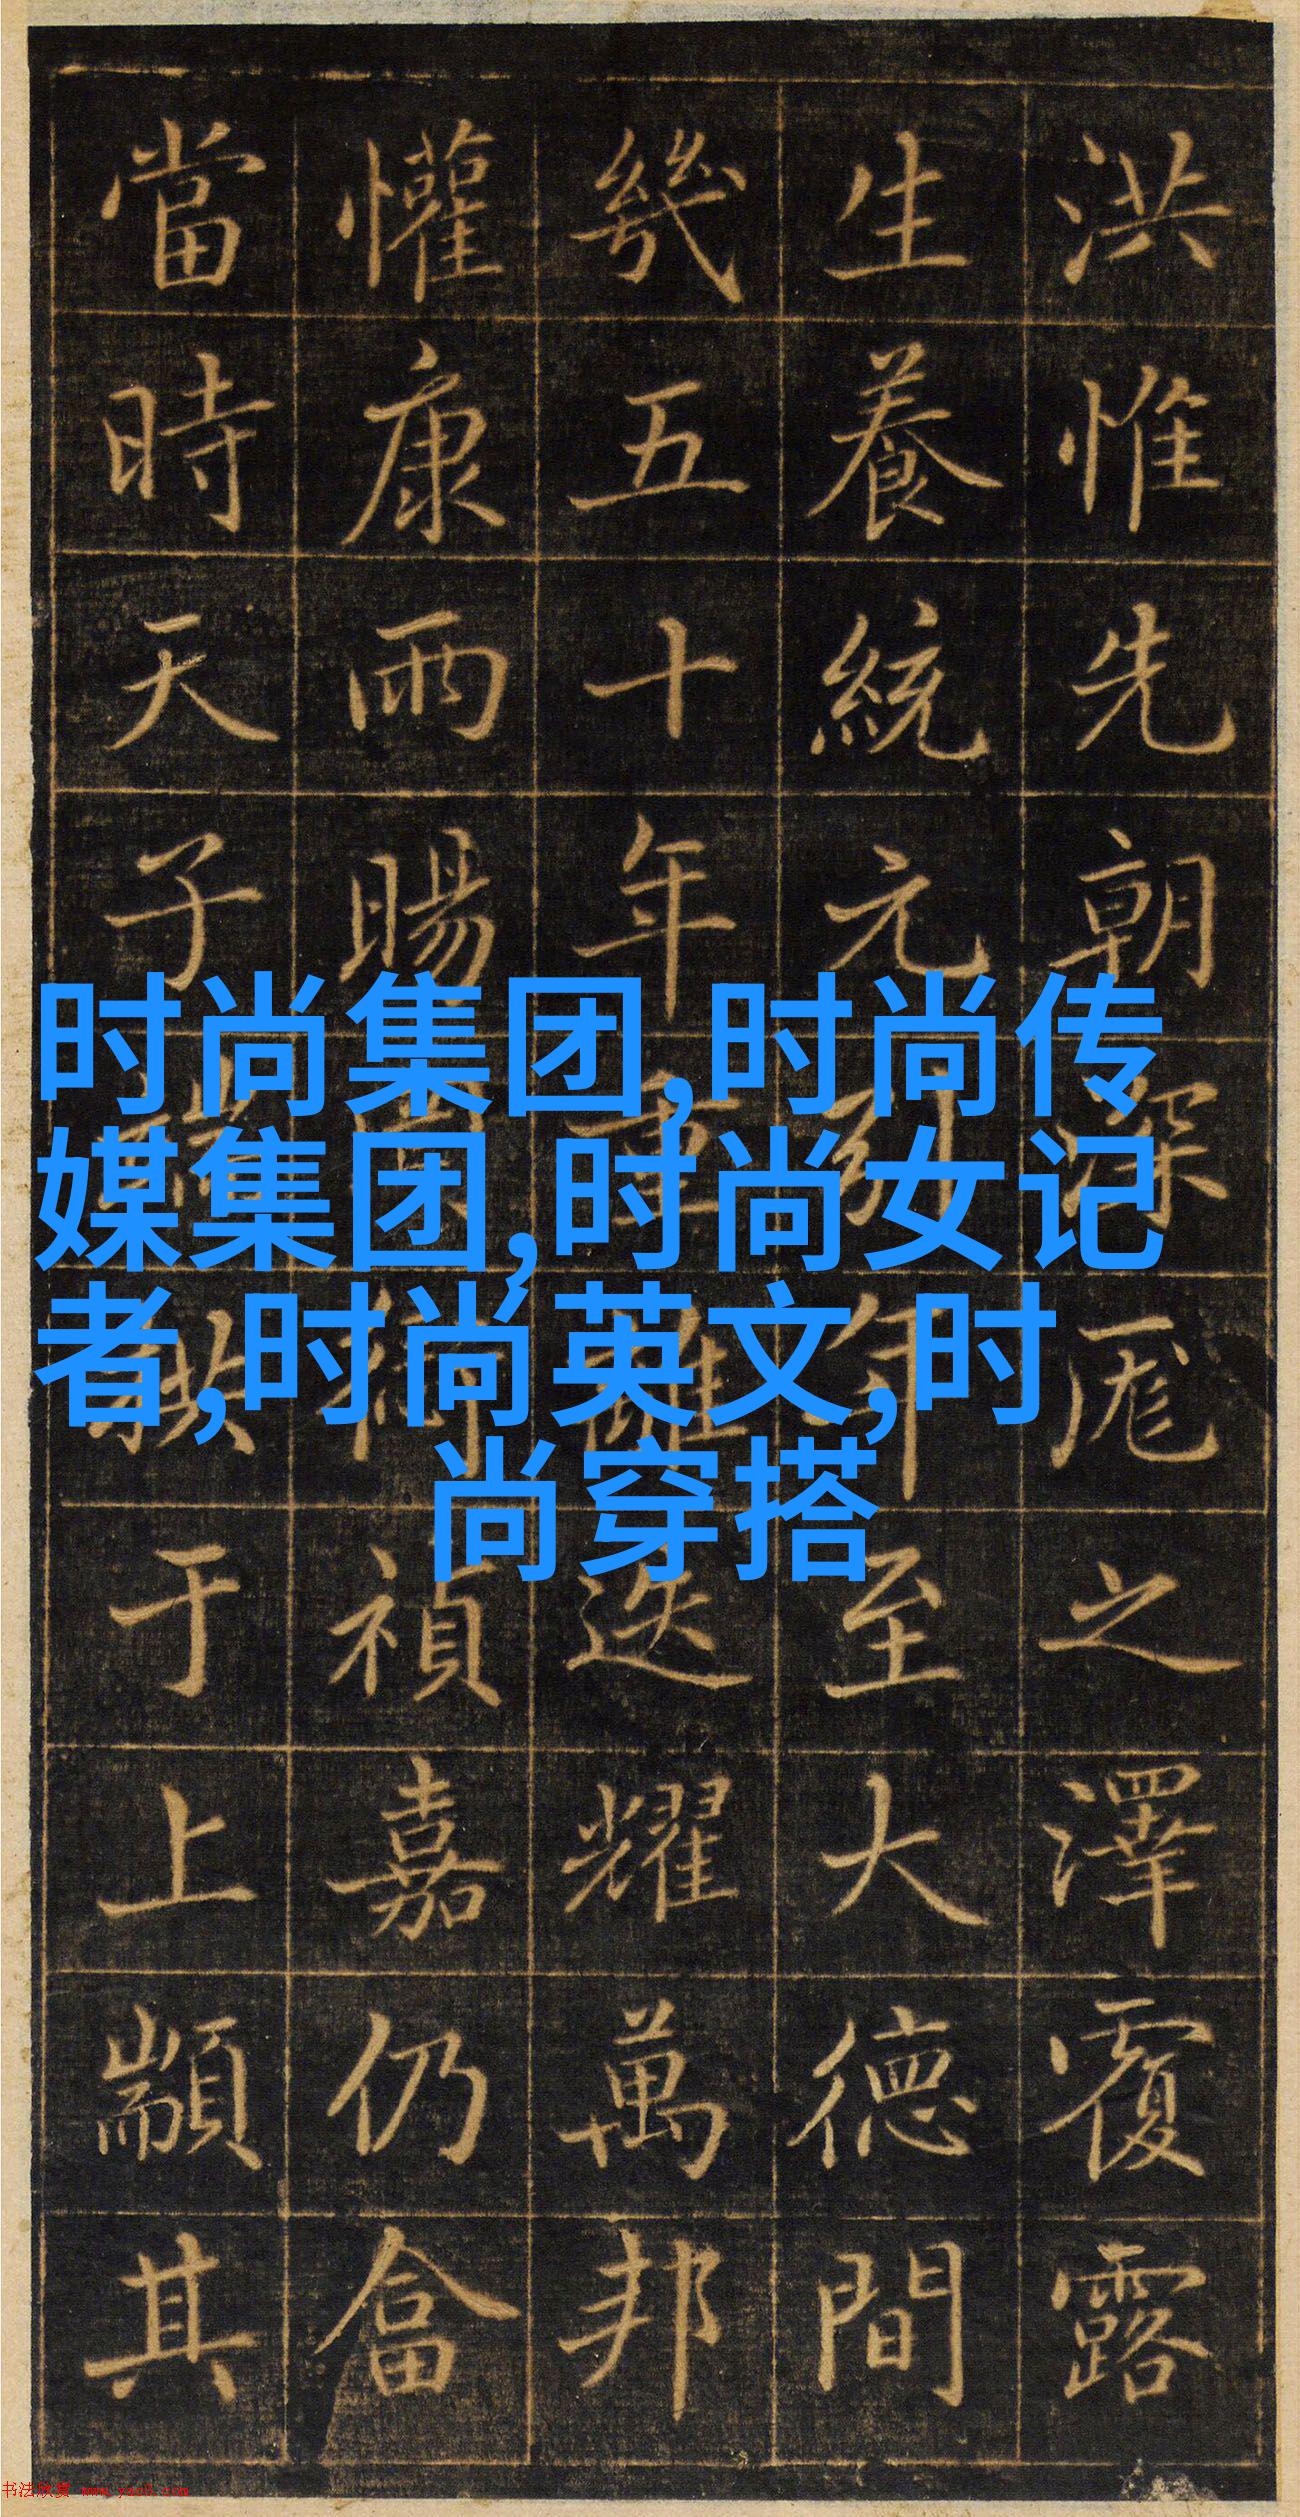 洪惟先朝深厖之澤覆露
生養統元引年至大德間
幾五十年重離迭耀萬邦
懽康雨暘禎嘉仍畬
當時天子端拱于上顒其
时尚集团,时尚传
媒集团,时尚女记
者,时尚英文,时
尚穿搭
书法欣赏 www.yac8.com